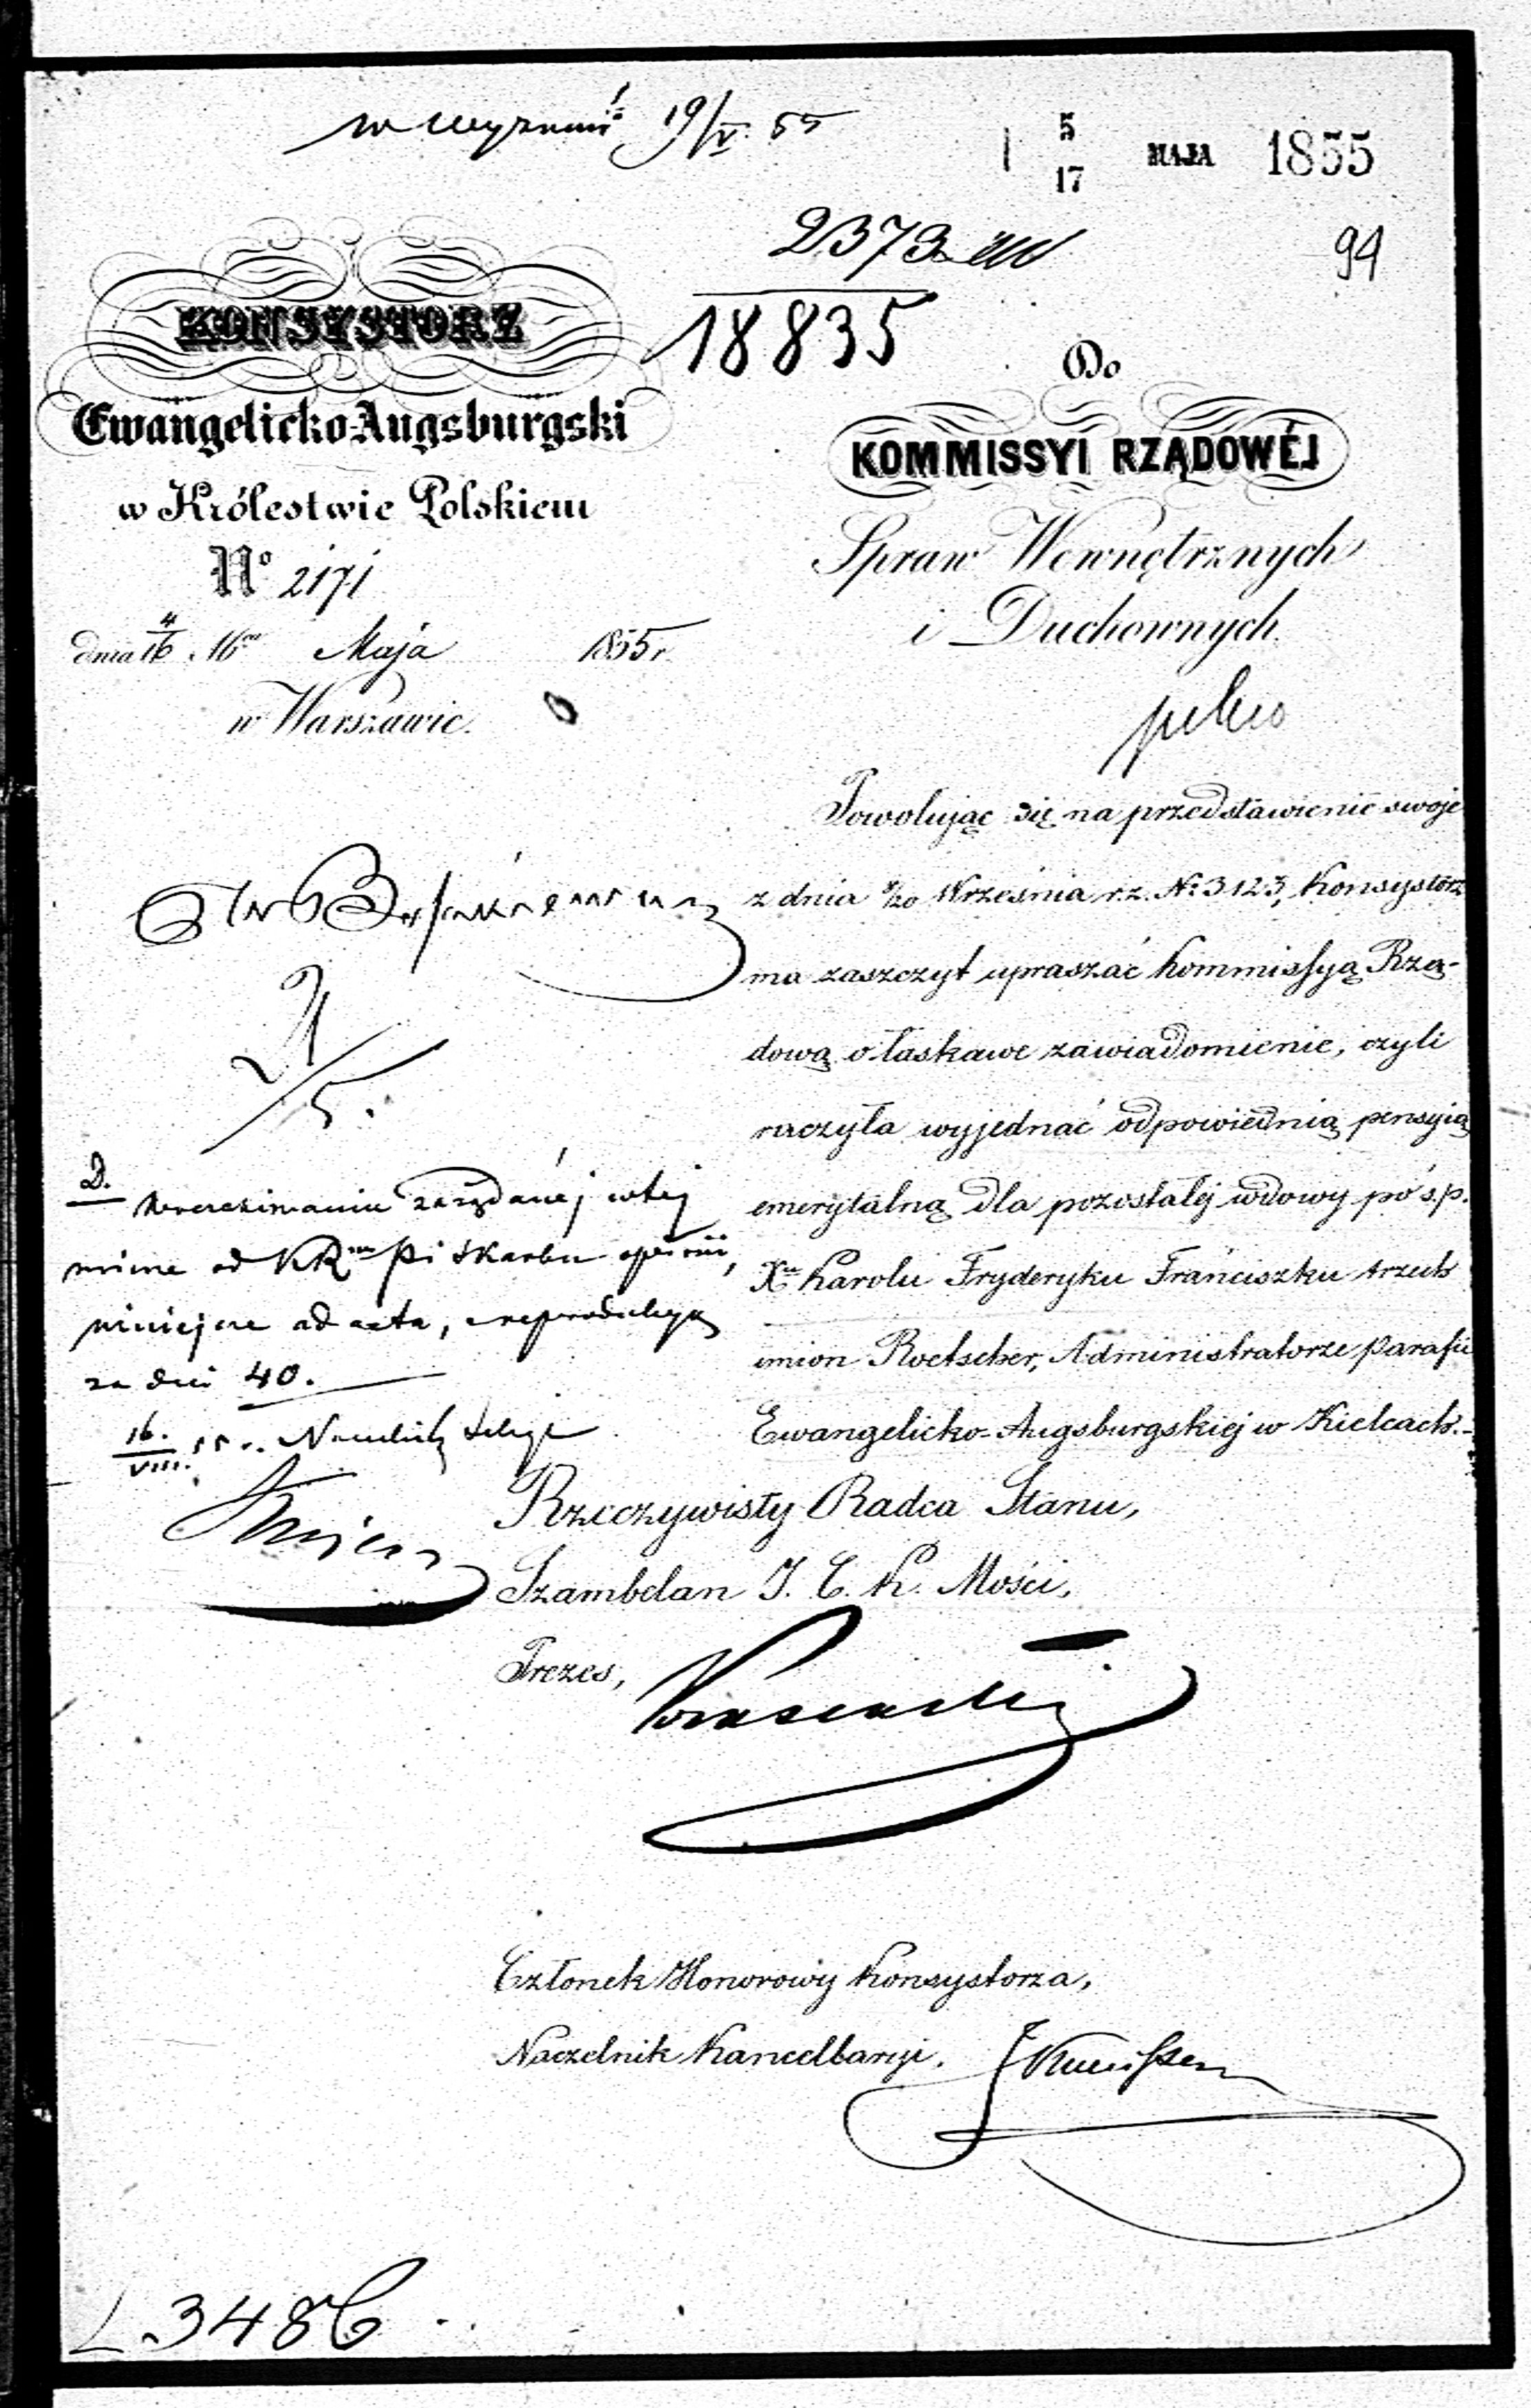 19/V 55
5
17 MAJA 1855
2373
18835
94
KONSYSTORZ
Ewangelicko-Augsburgski
w Królestwie Polskiem
No 2171
dnia 4/16 16go Maja 1855 r.
w Warszawie.
Do
KOMMISSYI RZĄDOWÉJ
Spraw Wewnętrznych
i Duchownych
Powołując się na przedstawienie swoje
z dnia 8/20 Września r.z. No 3123, Konsystorz
ma zaszczyt upraszać Kommissyą Rzą-
dową o łaskawe zawiadomienie, czyli
raczyła wyjednać odpowiednią pensyią
emerytalną dla pozostałej wdowy po ś.p.
Xu Karolu Fryderyku Franciszku trzech
imion Roetscher, Administratorze Parafii
Ewangelicko-Augsburgskiej w Kielcach.
21/5.
D.
żądanéj w tej
mierze od KR Pi Skarbu opinii,
niniejsze ad acta, a reprodukcyą
za dni 40.
16./VIII. 55 r. Naczelnik
Rzeczywisty Radca Stanu,
Szambelan J. C. K. Mości,
Prezes,
Członek Honorowy Konsystorza,
Naczelnik Kancellaryi.
L.3486